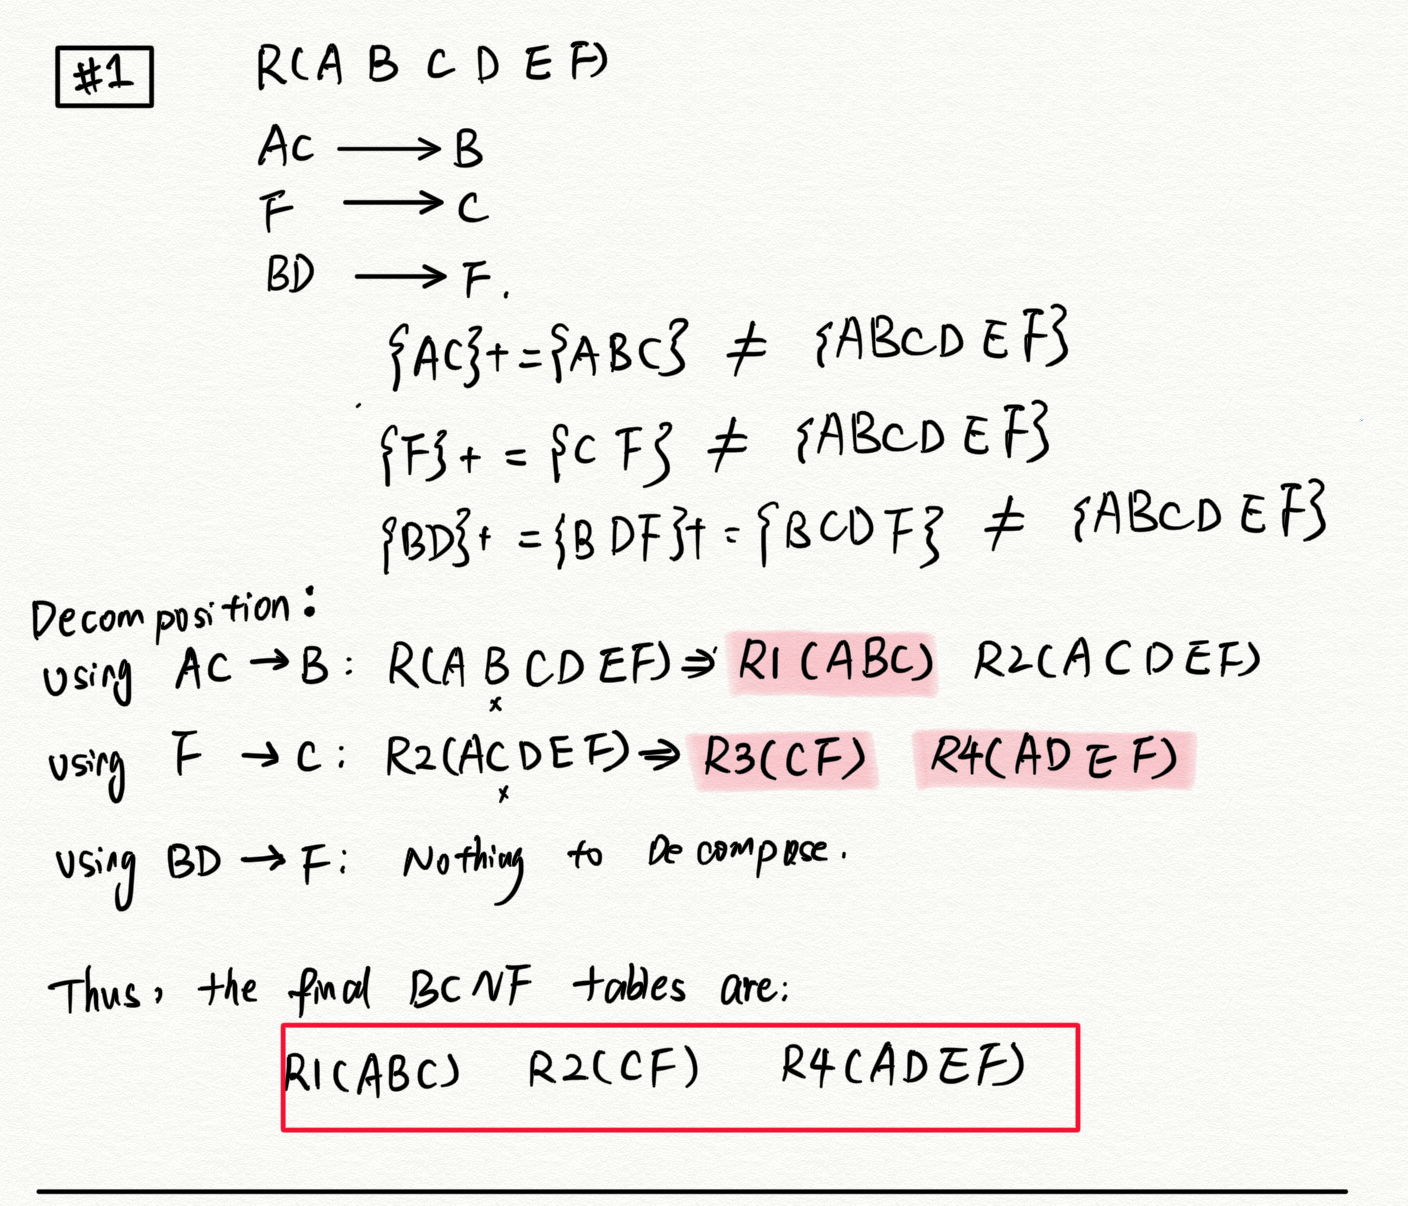 #1 R(A B C D E F)
AC → B
F → C
BD → F.
{AC}+ = {ABC} ≠ {ABCD E F}
{F}+ = {C F} ≠ {ABCD E F}
{BD}+ = {B DF}+ = {B C D F} ≠ {ABCD E F}
Decomposition:
using AC → B: R(A B C D E F) ⇒ R1(ABC) R2(A C D E F)
x
using F → C: R2(AC D E F) ⇒ R3(CF) R4(AD E F)
x
using BD → F: Nothing to Decompose.
Thus, the final BCNF tables are:
R1(ABC) R2(CF) R4(ADEF)